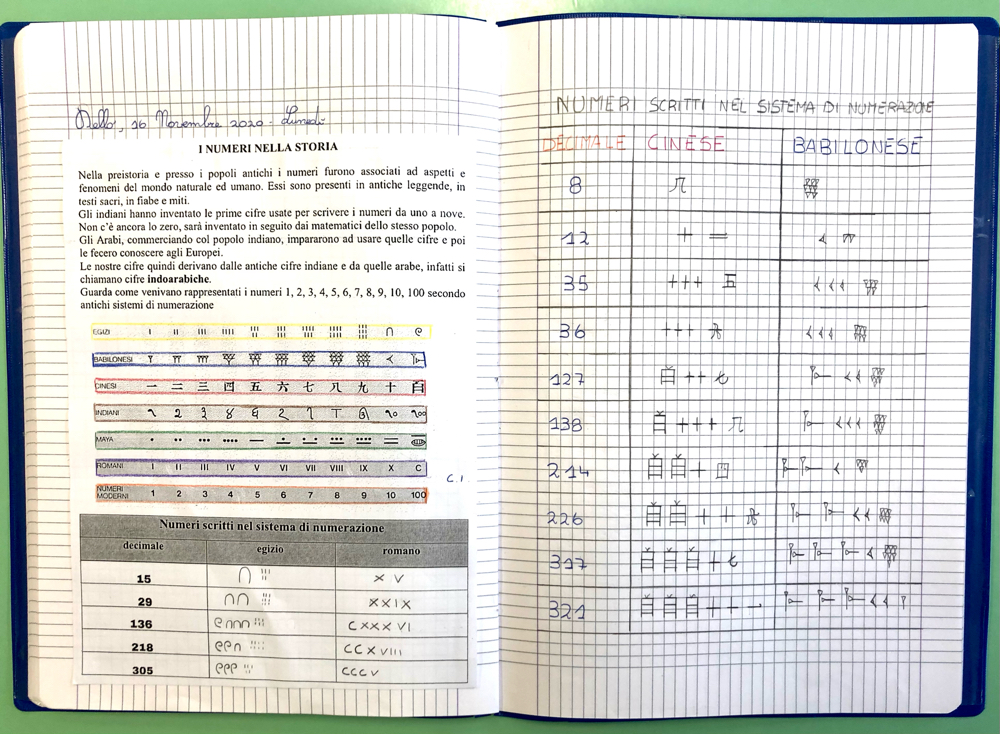 Dello, 16 Novembre 2020 - Lunedì
I NUMERI NELLA STORIA
Nella preistoria e presso i popoli antichi i numeri furono associati ad aspetti e
fenomeni del mondo naturale ed umano. Essi sono presenti in antiche leggende, in
testi sacri, in fiabe e miti.
Gli indiani hanno inventato le prime cifre usate per scrivere i numeri da uno a nove.
Non c'è ancora lo zero, sarà inventato in seguito dai matematici dello stesso popolo.
Gli Arabi, commerciando col popolo indiano, impararono ad usare quelle cifre e poi
le fecero conoscere agli Europei.
Le nostre cifre quindi derivano dalle antiche cifre indiane e da quelle arabe, infatti si
chiamano cifre indoarabiche.
Guarda come venivano rappresentati i numeri 1, 2, 3, 4, 5, 6, 7, 8, 9, 10, 100 secondo
antichi sistemi di numerazione
EGIZI
BABILONESI
CINESI 一 二 三 四 五 六 七 八 九 十 百
INDIANI
MAYA
ROMANI I II III IV V VI VII VIII IX X C
NUMERI
MODERNI 1 2 3 4 5 6 7 8 9 10 100
C.I.
Numeri scritti nel sistema di numerazione
decimale egizio romano
15 XV
29 XXIX
136 CXXXVI
218 CCXVIII
305 CCCV
NUMERI SCRITTI NEL SISTEMA DI NUMERAZIONE
DECIMALE CINESE BABILONESE
8
12 十 二
35 十十十 五
36 十十十 六
127 百 十十 七
138 百 十十十 八
214 百百十 四
226 百百 十十 六
317 百百百十 七
321 百百百十十一